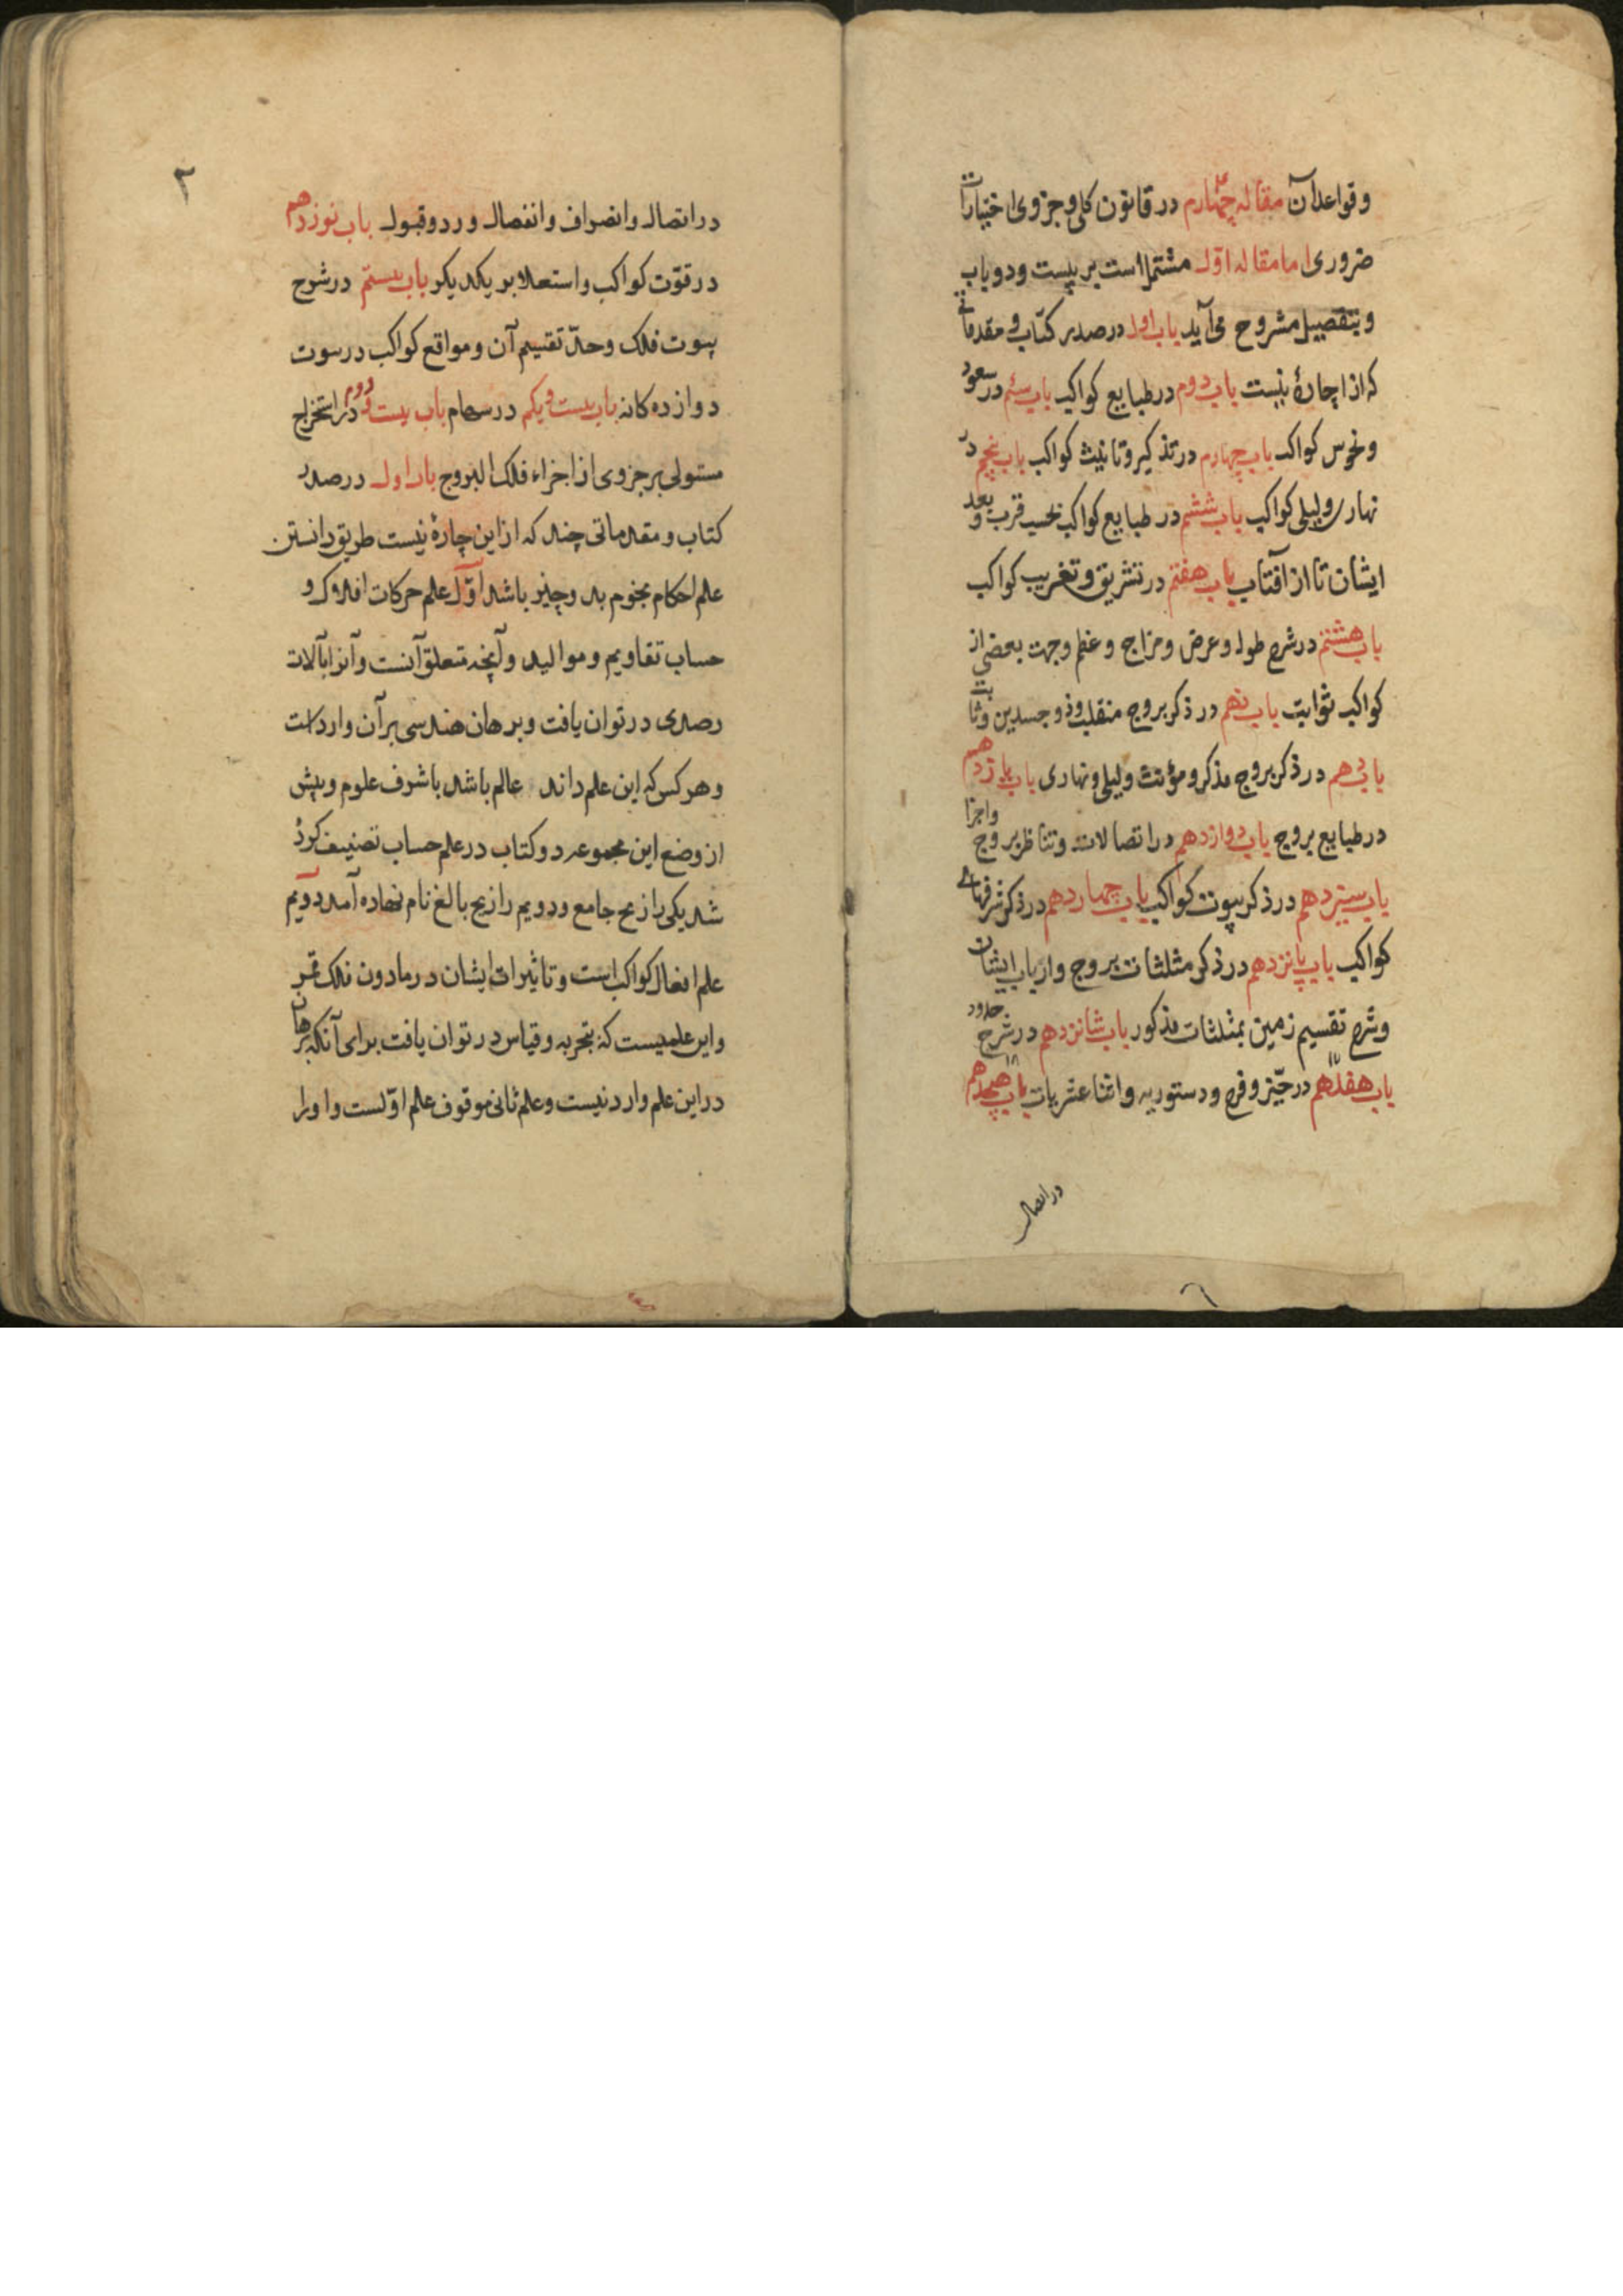 و قواعد آن مقاله چهارم در قانون کلی و جزوی اختیارات
ضروری اما مقاله اول مشتمل است بر بیست و دو باب
و بتفصیل مشروح می آید باب اول در صدر کتاب و مقدماتی
که از اچارهٔ نیست باب دوم در طبایع کواکب باب سیم در سعود
و نحوس کواکب باب چهارم در تذکیر و تانیث کواکب باب پنجم در
نهاری و لیلی کواکب باب ششم در طبایع کواکب بحسب قرب و بعد
ایشان تا از آفتاب باب هفتم در تشریق و تغریب کواکب
باب هشتم در شرح طول و عرض و مزاج و عظم و جهت بعضی از
کواکب ثوابت باب نهم در ذکر بروج منقلب و ذو جسدین و ثابت
باب دهم در ذکر بروج مذکر و مؤنث و لیلی و نهاری باب یازدهم
در طبایع بروج و اجزا باب دوازدهم در اتصالات و تناظر بروج
باب سیزدهم در ذکر بیوت کواکب باب چهاردهم در ذکر شرفهای
کواکب باب پانزدهم در ذکر مثلثات بروج و ارباب ایشان
و شرح تقسیم زمین بمثلثات مذکور باب شانزدهم در شرح حدود
باب هفدهم در حیّز و فرح و دستوریه و اثنا عشریات باب هیجدهم
در اتصال
۲
در اتصال و انصراف و انفصال و رد و قبول باب نوزدهم
در قوّت کواکب و استعلا بر یکدیگر باب بیستم در شرح
بیوت فلک و حدّ تقسیم آن و مواقع کواکب در بیوت
دوازده کانه باب بیست و یکم در سهام باب بیست و دوم در استخراج
مستولی بر جزوی از اجزاء فلک البروج باب اول در صدر
کتاب و مقدماتی چند که از این چارهٔ نیست طریق دانستن
علم احکام نجوم بدو چیز باشد اوّل علم حرکات افلاک و
حساب تقاویم و موالید و آنچه متعلق آنست و آنرا بآلات
رصدی در توان یافت و برهان هندسی بر آن وارد است
و هر کس که این علم داند عالم باشد باشرف علوم و پیش
از وضع این مجموعه دو کتاب در علم حساب تصنیف کردهٔ
شد یکی را زیج جامع و دویم را زیج بالغ نام نهاده آمد دویم
علم افعال کواکب است و تاثیرات ایشان در مادون فلک قمر
و این علمیست که بتجربه و قیاس در توان یافت برای آنکه برهان
در این علم وارد نیست و علم ثانی موقوف علم اوّلست و او را